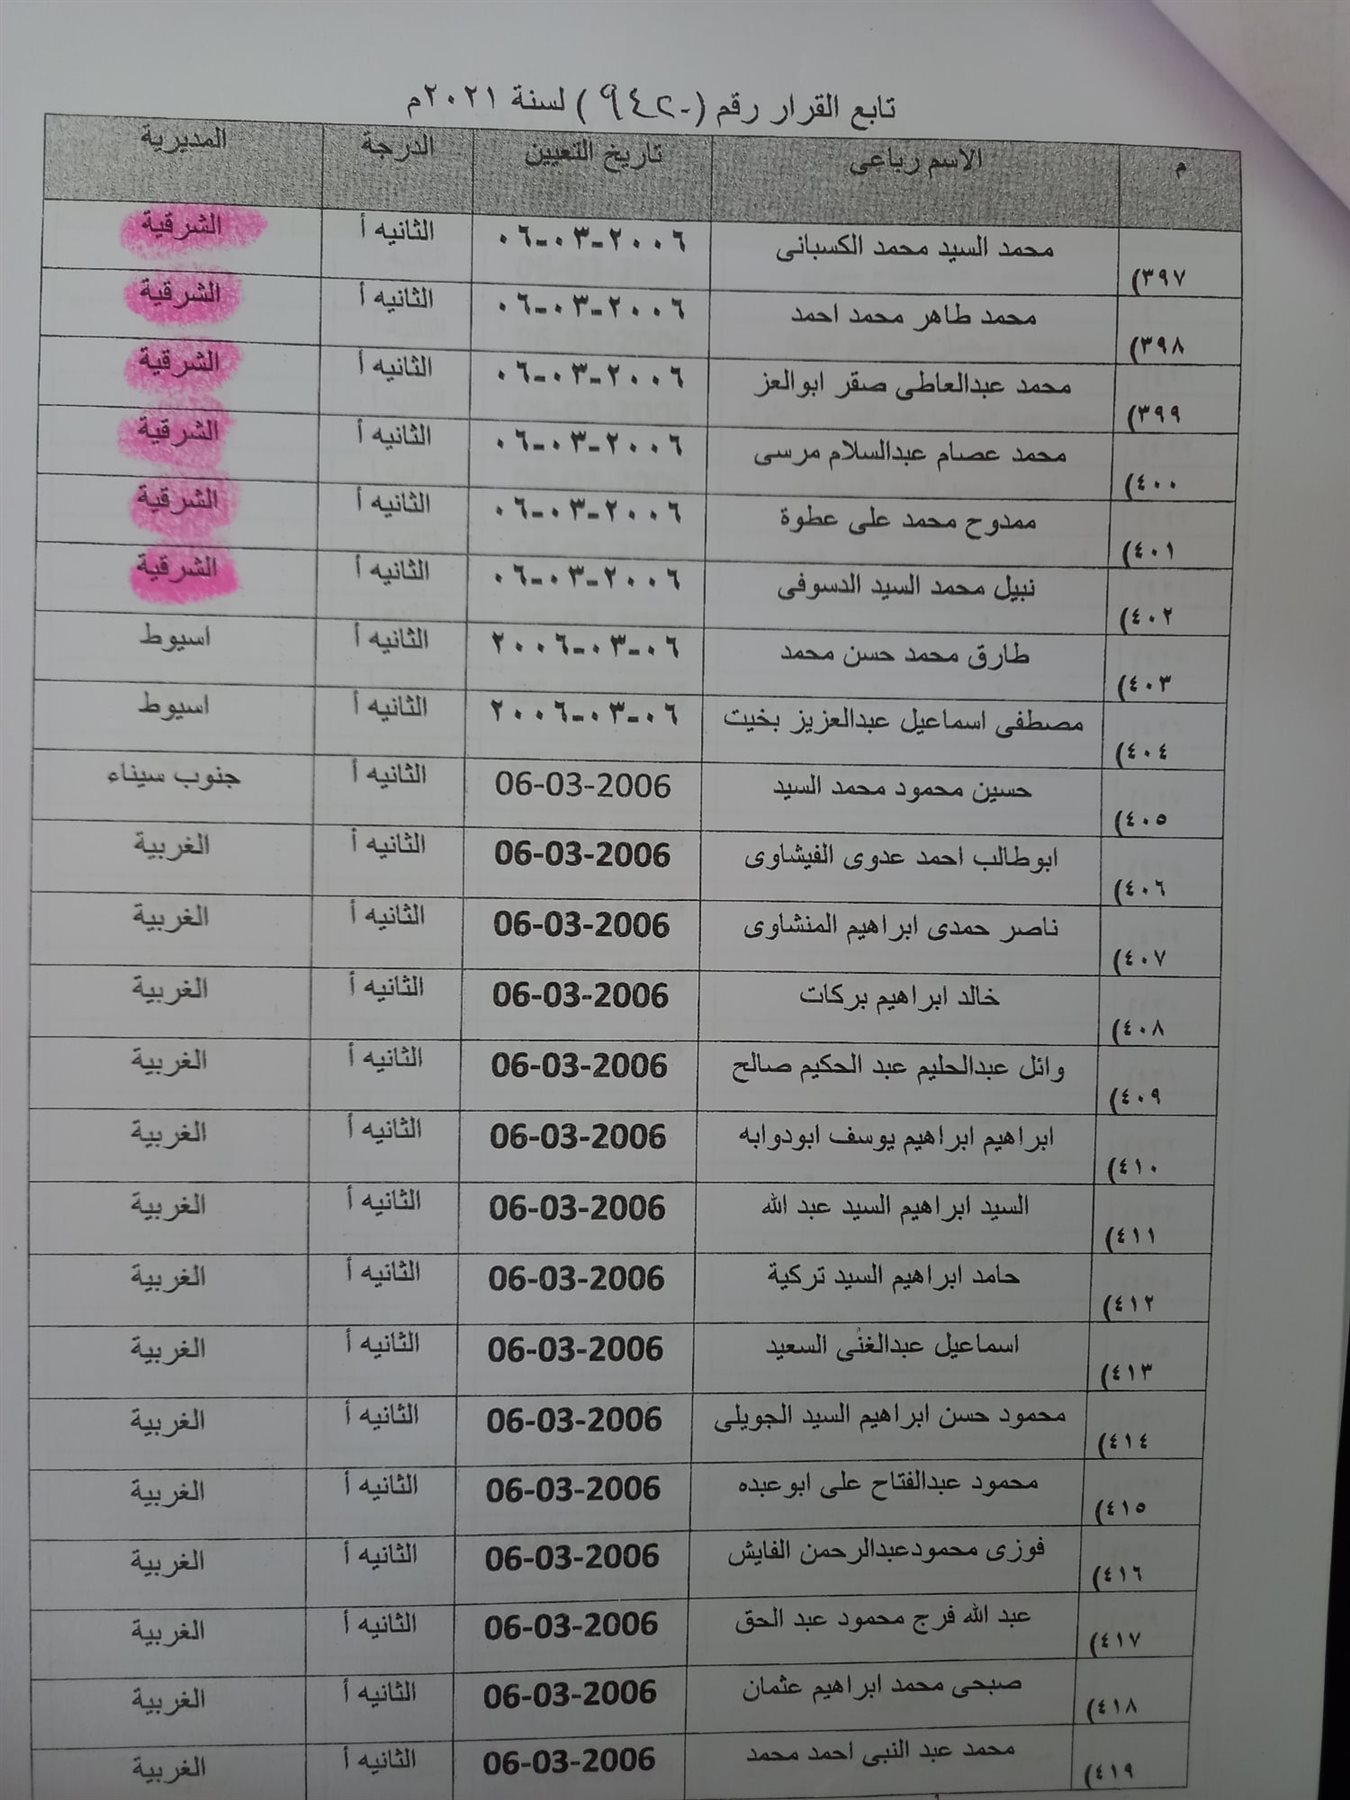 تابع القرار رقم (٩٤٢٠) لسنة ٢٠٢١م
م الاسم رباعى تاريخ التعيين الدرجة المديرية
٣٩٧) محمد السيد محمد الكسبانى ٢٠٠٦-٠٣-٠٦ الثانيه أ الشرقية
٣٩٨) محمد طاهر محمد احمد ٢٠٠٦-٠٣-٠٦ الثانيه أ الشرقية
٣٩٩) محمد عبدالعاطى صقر ابوالعز ٢٠٠٦-٠٣-٠٦ الثانيه أ الشرقية
٤٠٠) محمد عصام عبدالسلام مرسى ٢٠٠٦-٠٣-٠٦ الثانيه أ الشرقية
٤٠١) ممدوح محمد على عطوة ٢٠٠٦-٠٣-٠٦ الثانيه أ الشرقية
٤٠٢) نبيل محمد السيد الدسوفى ٢٠٠٦-٠٣-٠٦ الثانيه أ الشرقية
٤٠٣) طارق محمد حسن محمد ٠٦-٠٣-٢٠٠٦ الثانيه أ اسيوط
٤٠٤) مصطفى اسماعيل عبدالعزيز بخيت ٠٦-٠٣-٢٠٠٦ الثانيه أ اسيوط
٤٠٥) حسين محمود محمد السيد 06-03-2006 الثانيه أ جنوب سيناء
٤٠٦) ابوطالب احمد عدوى الفيشاوى 06-03-2006 الثانيه أ الغربية
٤٠٧) ناصر حمدى ابراهيم المنشاوى 06-03-2006 الثانيه أ الغربية
٤٠٨) خالد ابراهيم بركات 06-03-2006 الثانيه أ الغربية
٤٠٩) وائل عبدالحليم عبد الحكيم صالح 06-03-2006 الثانيه أ الغربية
٤١٠) ابراهيم ابراهيم يوسف ابودوابه 06-03-2006 الثانيه أ الغربية
٤١١) السيد ابراهيم السيد عبد الله 06-03-2006 الثانيه أ الغربية
٤١٢) حامد ابراهيم السيد تركية 06-03-2006 الثانيه أ الغربية
٤١٣) اسماعيل عبدالغنى السعيد 06-03-2006 الثانيه أ الغربية
٤١٤) محمود حسن ابراهيم السيد الجويلى 06-03-2006 الثانيه أ الغربية
٤١٥) محمود عبدالفتاح على ابوعبده 06-03-2006 الثانيه أ الغربية
٤١٦) فوزى محمودعبدالرحمن الفايش 06-03-2006 الثانيه أ الغربية
٤١٧) عبد الله فرج محمود عبد الحق 06-03-2006 الثانيه أ الغربية
٤١٨) صبحى محمد ابراهيم عثمان 06-03-2006 الثانيه أ الغربية
٤١٩) محمد عبد النبى احمد محمد 06-03-2006 الثانيه أ الغربية